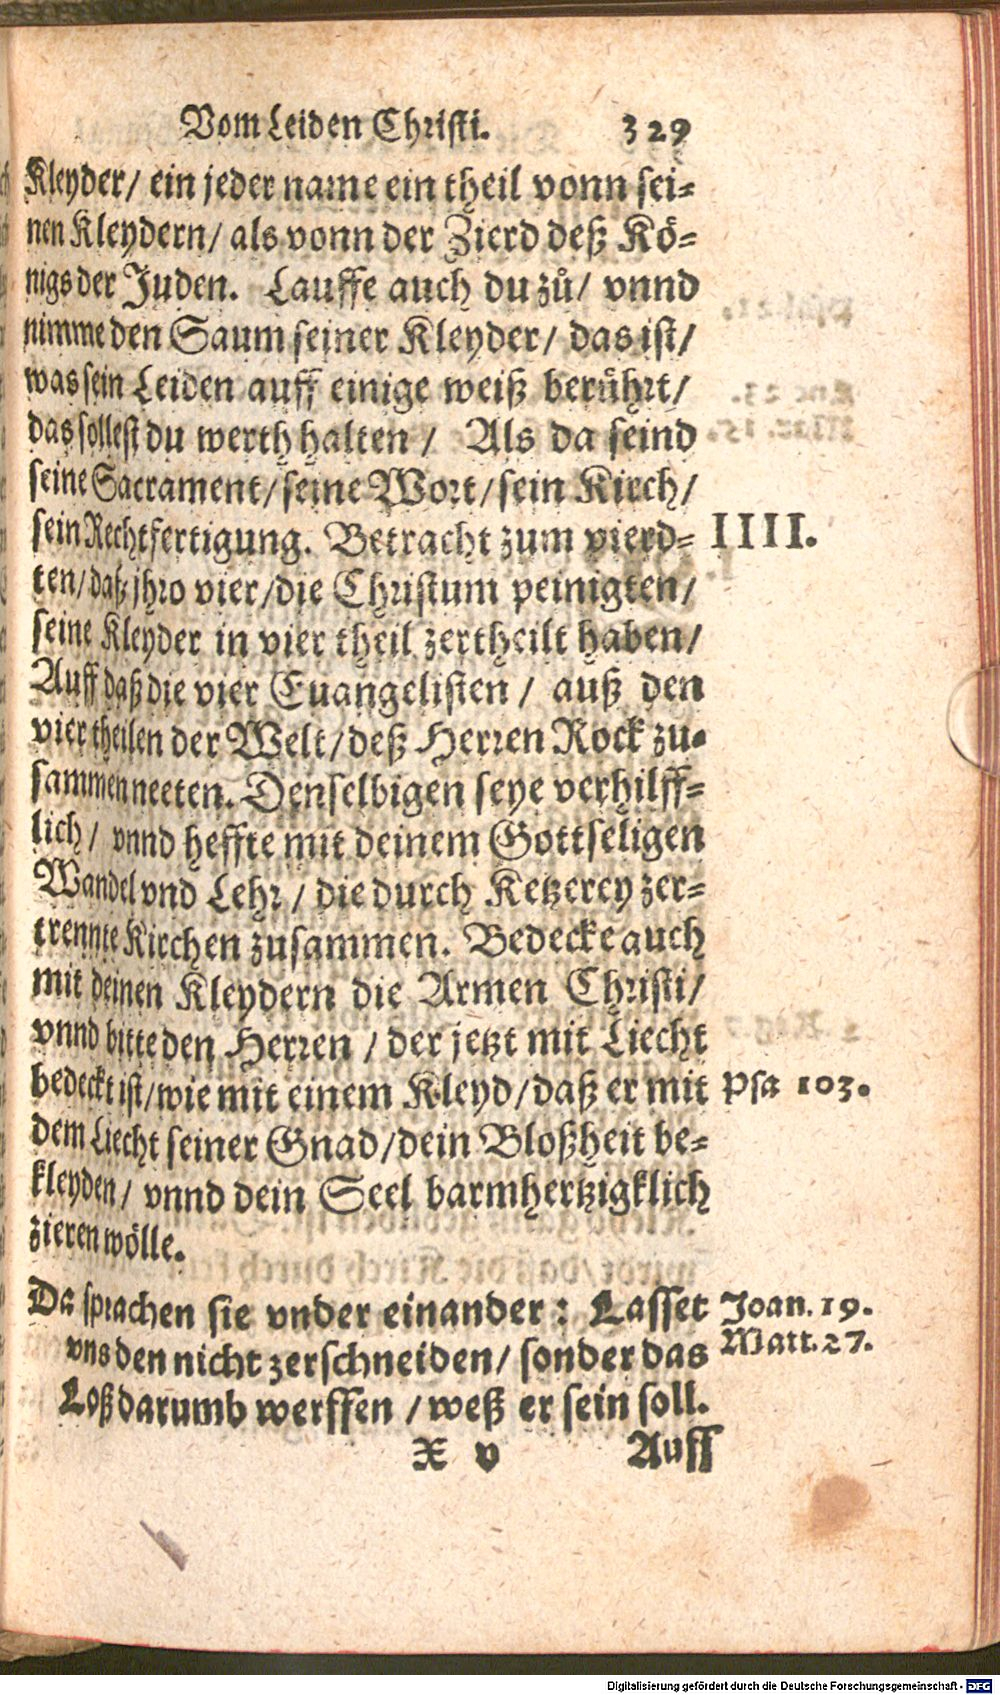 Vom Leiden Christi. 329
Kleyder/ ein jeder name ein theil vonn sei=
nen Kleydern/ als vonn der Zierd deß Kö=
nigs der Juden. Lauffe auch du zů/ vnnd
nimme den Saum seiner Kleyder/ das ist/
was sein Leiden auff einige weiß berührt/
das sollest du werth halten / Als da seind
seine Sacrament/ seine Wort/ sein Kirch/
sein Rechtfertigung. Betracht zum vierd= IIII.
ten/ daß jhro vier/ die Christum peinigten/
seine Kleyder in vier theil zertheilt haben/
Auff daß die vier Euangelisten / auß den
vier theilen der Welt/ deß Herren Rock zu=
sammen neeten. Denselbigen seye verhilff=
lich/ vnnd heffte mit deinem Gottseligen
Wandel vnd Lehr/ die durch Ketzerey zer=
trennte Kirchen zusammen. Bedecke auch
mit deinen Kleydern die Armen Christi/
vnnd bitte den Herren / der jetzt mit Liecht
bedeckt ist/ wie mit einem Kleyd/ daß er mit Psa 103.
dem Liecht seiner Gnad/ dein Bloßheit be=
kleyden/ vnnd dein Seel barmhertzigklich
zieren wölle.
Da sprachen sie vnder einander: Lasset Joan. 19.
vns den nicht zerschneiden/ sonder das Matt. 27.
Loß darumb werffen / weß er sein soll.
X v Auff
Digitalisierung gefördert durch die Deutsche Forschungsgemeinschaft - DFG